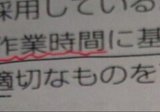 採用している
作業時間に基
適切なものを